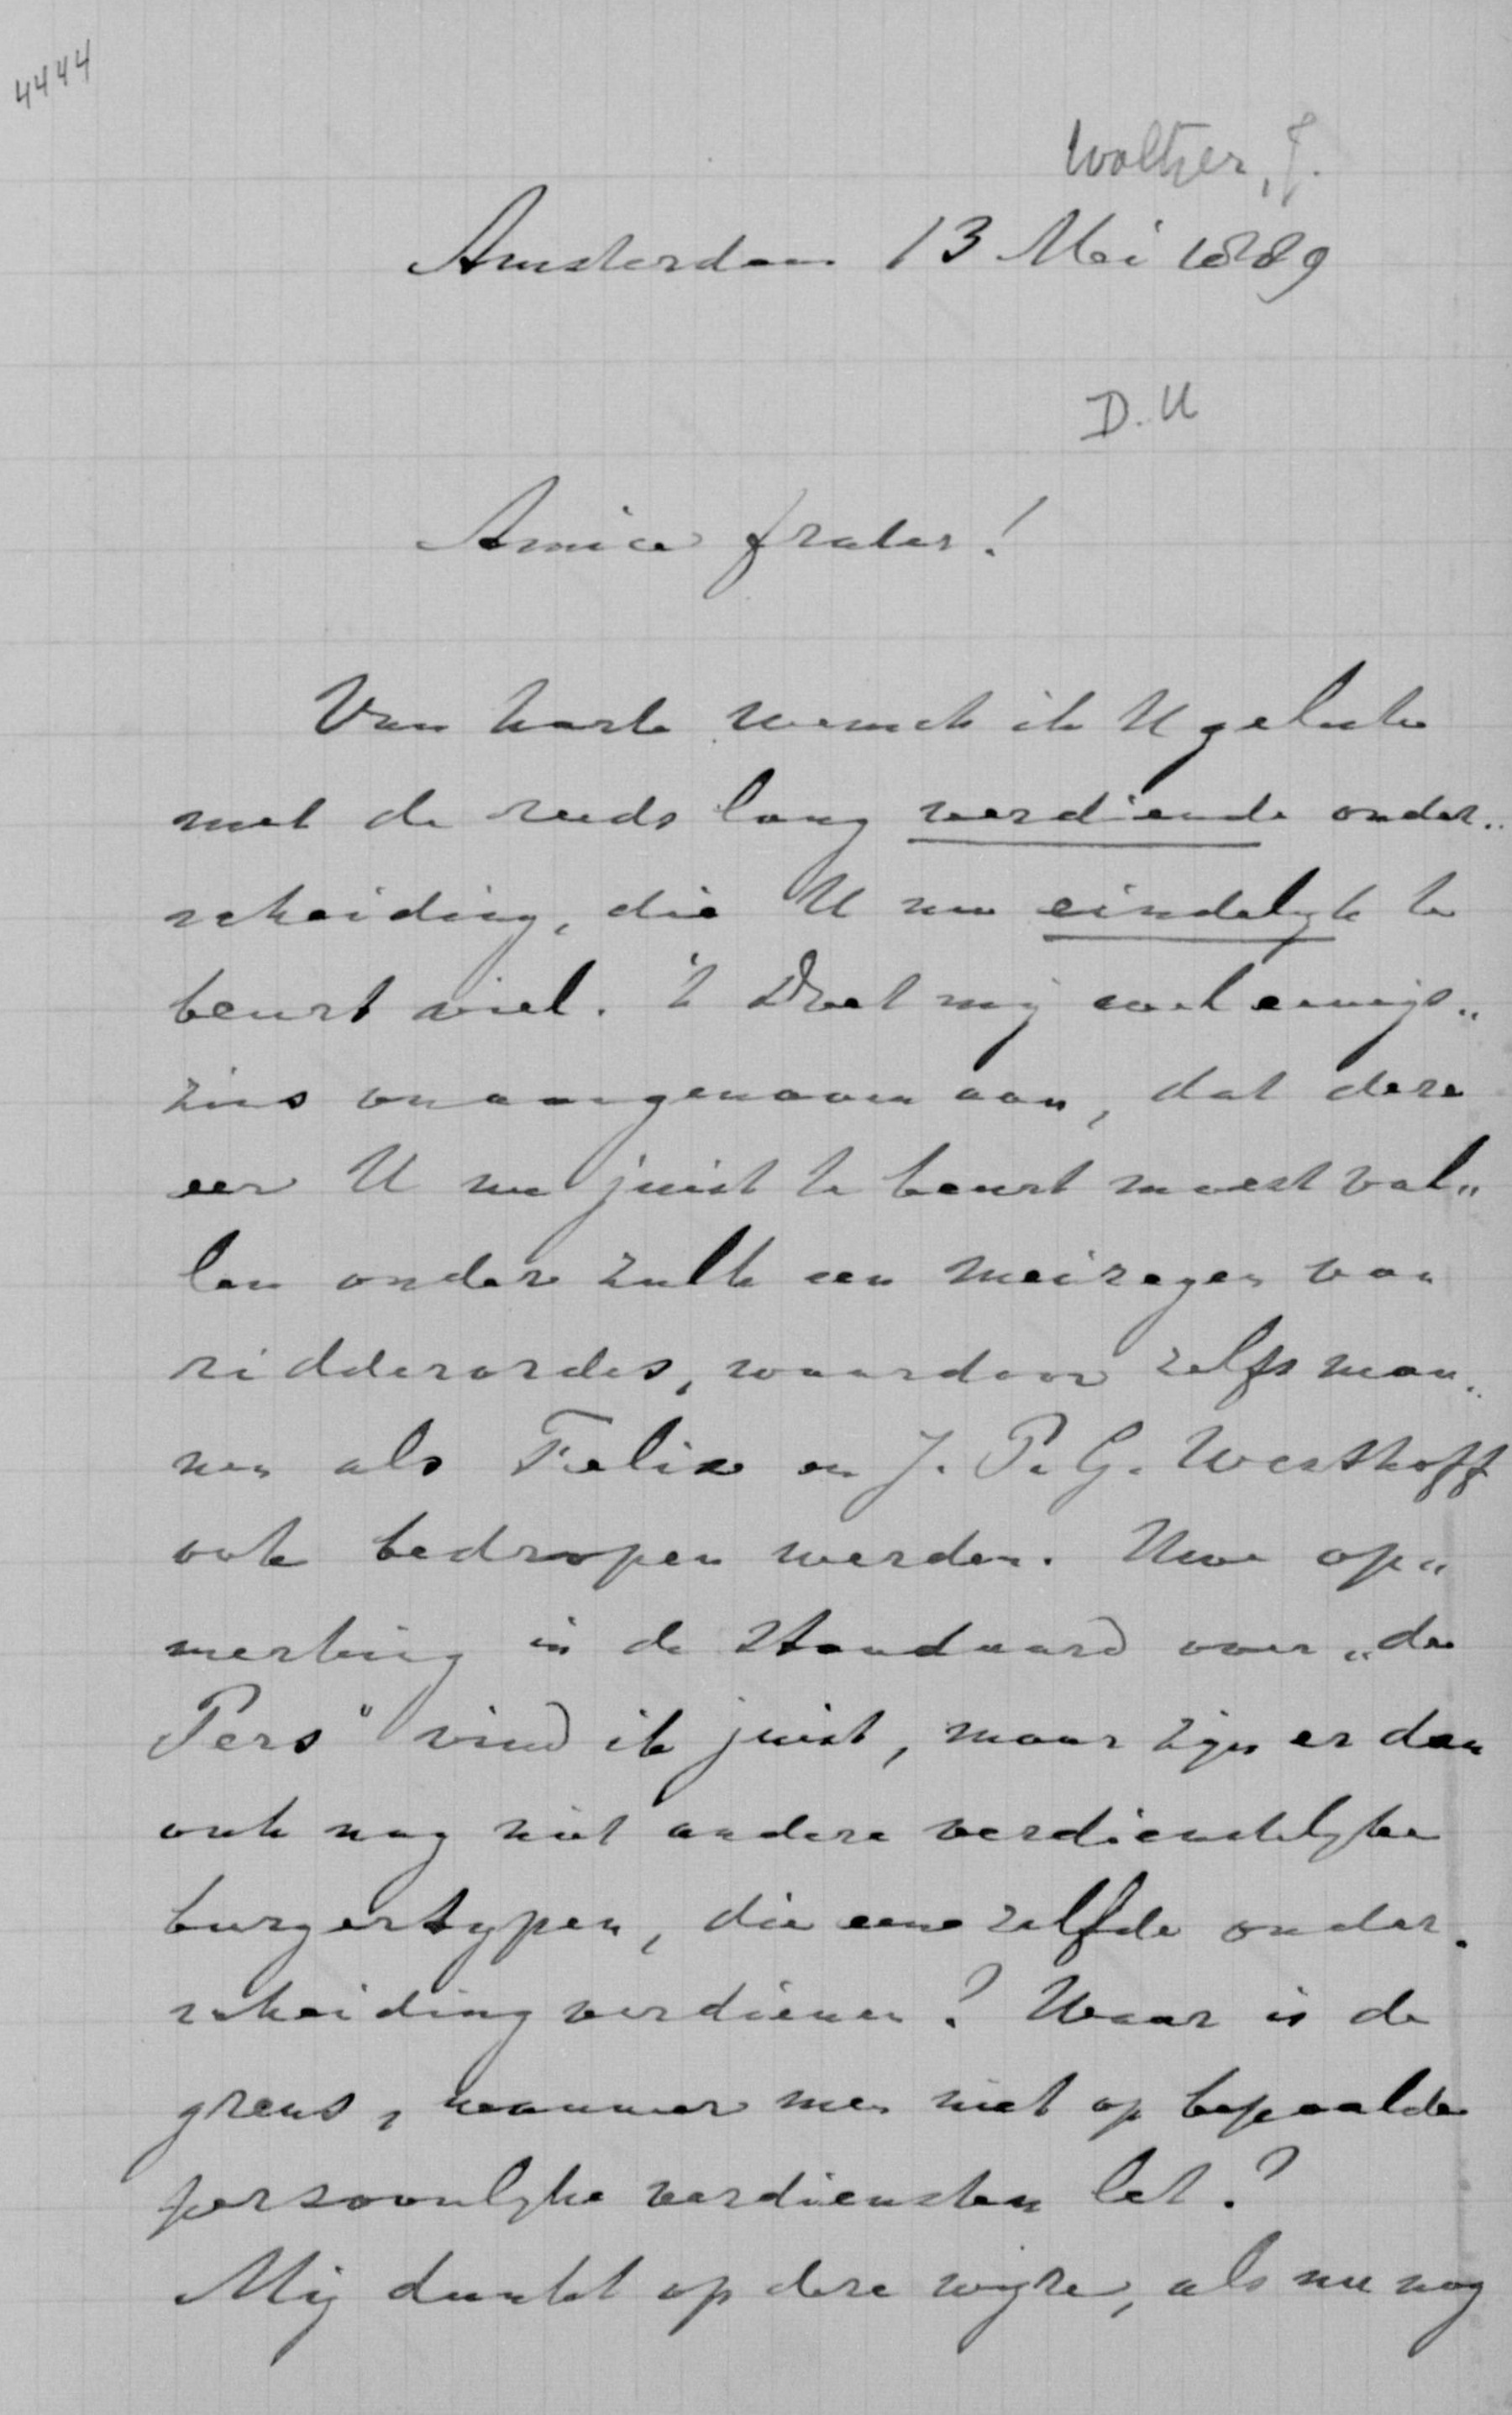 4444
Woltjer, J.
Amsterdam 13 Mei 1889
D. U
Amice frater!
Van harte wensch ik U geluk
met de reeds lang verdiende onder„
scheiding, die U nu eindelijk te
beurt viel. 't Doet mij wel eenigs„
zins onaangenaam aan, dat deze
eer U nu juist te beurt moest val„
len onder zulk een meiregen van
ridderordes, waardoor zelfs man„
nen als Felix en J. P. G. Westhoff
ook bedropen werden. Uwe op„
merking in de Standaard over „de
Pers" vind ik juist, maar zijn er dan
ook nog niet andere verdienstelijke
burgertypen, die eene zelfde onder„
scheiding verdienen? Waar is de
grens, wanneer men niet op bepaalde
persoonlijke verdiensten let?
Mij dunkt op deze wijze, als nu nog